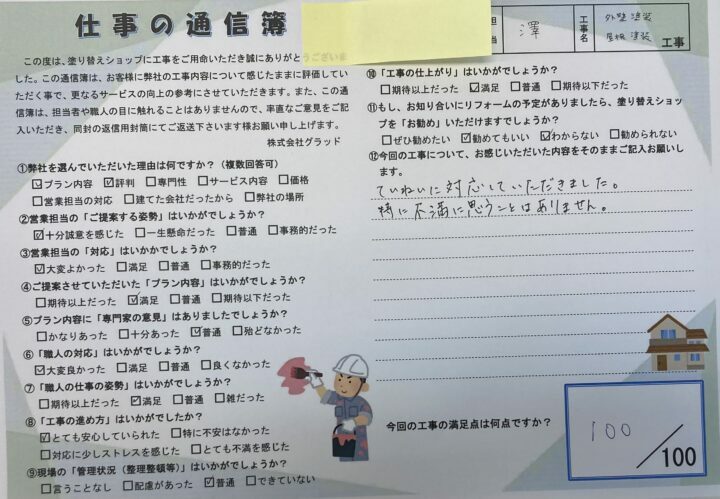 仕事の通信簿
この度は、塗り替えショップに工事をご用命いただき誠にありがとうございま
した。この通信簿は、お客様に弊社の工事内容について感じたままに評価してい
ただく事で、更なるサービスの向上の参考にさせていただきます。また、この通
信簿は、担当者や職人の目に触れることはありませんので、率直なご意見をご記
入いただき、同封の返信用封筒にてご返送下さいます様お願い申し上げます。
株式会社グラッド
①弊社を選んでいただいた理由は何ですか？（複数回答可）
☑プラン内容 ☑評判 □専門性 □サービス内容 □価格
□営業担当の対応 □建てた会社だったから □弊社の場所
②営業担当の「ご提案する姿勢」はいかがでしょうか？
☑十分誠意を感じた □一生懸命だった □普通 □事務的だった
③営業担当の「対応」はいかかでしょうか？
☑大変よかった □満足 □普通 □事務的だった
④ご提案させていただいた「プラン内容」はいかがでしょうか？
□期待以上だった ☑満足 □普通 □期待以下だった
⑤プラン内容に「専門家の意見」はありましたでしょうか？
□かなりあった □十分あった ☑普通 □殆どなかった
⑥「職人の対応」はいかがでしょうか？
☑大変良かった □満足 □普通 □良くなかった
⑦「職人の仕事の姿勢」はいかがでしょうか？
□期待以上だった ☑満足 □普通 □雑だった
⑧「工事の進め方」はいかがでしたか？
☑とても安心していられた □特に不安はなかった
□対応に少しストレスを感じた □とても不満を感じた
⑨現場の「管理状況（整理整頓等）」はいかがでしょうか？
□言うことなし □配慮があった ☑普通 □できていない
担当 澤
工事名 外壁塗装 屋根塗装 工事
⑩「工事の仕上がり」はいかがでしょうか？
□期待以上だった ☑満足 □普通 □期待以下だった
⑪もし、お知り合いにリフォームの予定がありましたら、塗り替えショッ
プを「お勧め」いただけますでしょうか？
□ぜひ勧めたい ☑勧めてもいい ☑わからない □勧められない
⑫今回の工事について、お感じいただいた内容をそのままご記入お願いし
ます。
ていねいに対応していただきました。
特に不満に思うことはありません。
今回の工事の満足点は何点ですか？
100
/100